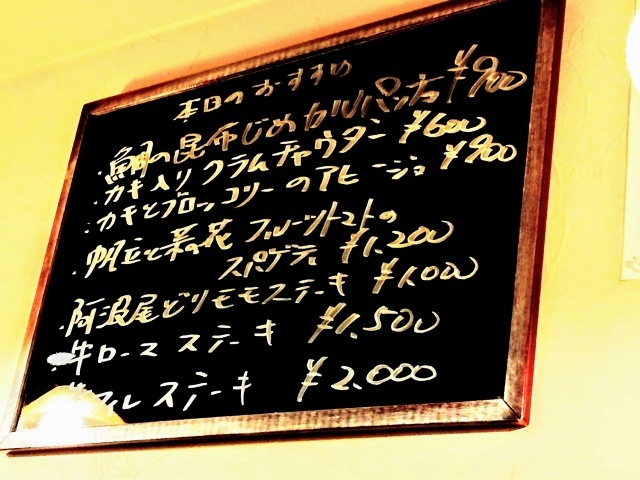 本日のおすすめ
・鯛の昆布じめカルパッチョ ¥900
・カキ入りクラムチャウダー ¥600
・カキとブロッコリーのアヒージョ ¥900
・帆立と菜の花 フルーツトマトの
スパゲティ ¥1.200
・阿波尾どりモモステーキ ¥1.000
・牛ロース ステーキ ¥1.500
牛フィレ ステーキ ¥2.000